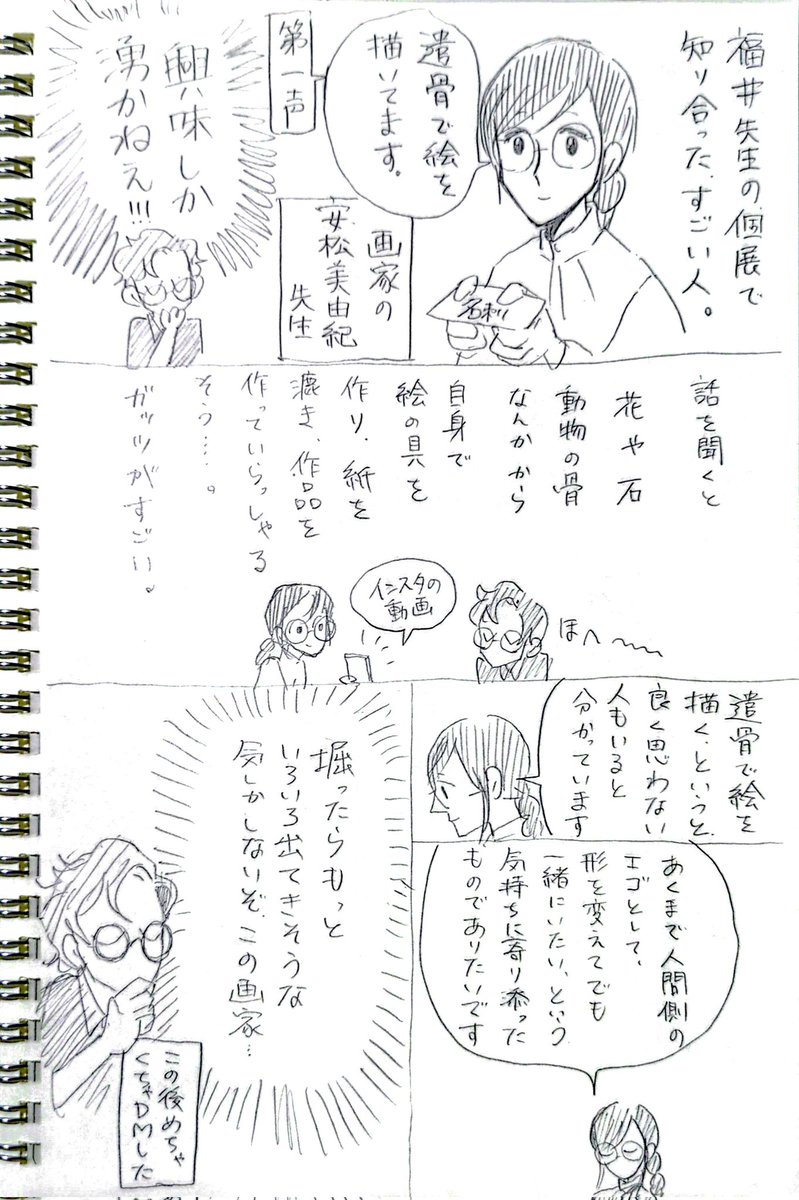 福井先生の個展で
知り合った、すごい人。
遺骨で絵を
描いてます。
名刺
第一声
画家の
安松美由紀
先生
興味しか
湧かねえ!!!
話を聞くと
花や石
動物の骨
なんかから
自身で
絵の具を
作り、紙を
漉き、作品を
作っていらっしゃる
そう……。
ガッツがすごい。
ほへ〜〜
インスタの
動画
遺骨で絵を
描く、というと、
良く思わない
人もいると
分かっています
あくまで人間側の
エゴとして、
形を変えてでも
一緒にいたい、という
気持ちに寄り添った
ものでありたいです
堀ったらもっと
いろいろ出てきそうな
気しかしないぞ、この画家…
この後めちゃ
くちゃDMした